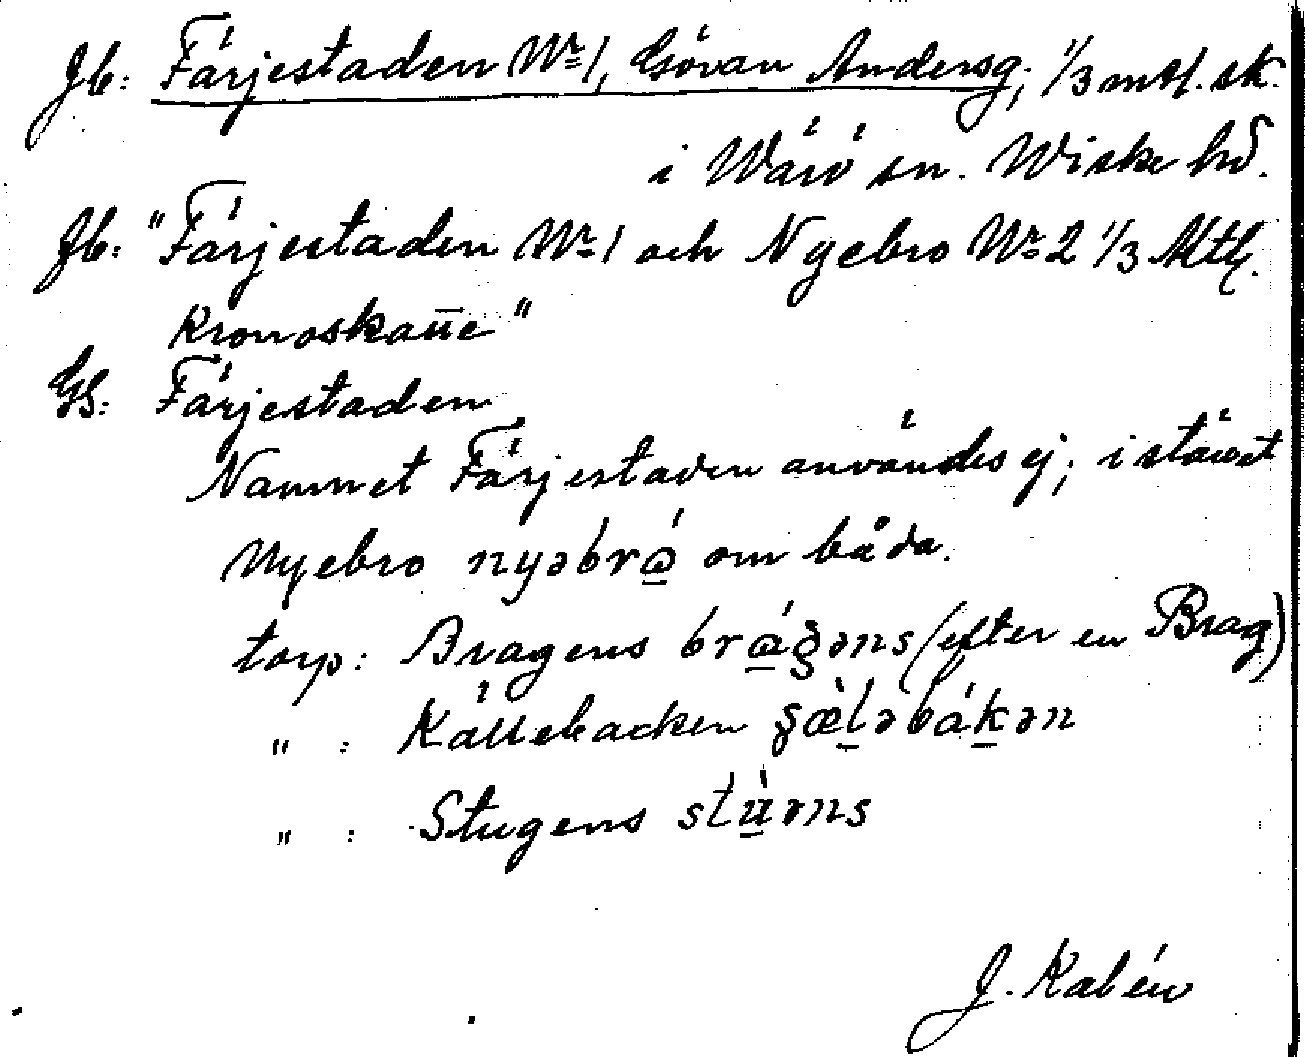 Jb: Färjestaden Nr 1, Göran Andersg; 1/3 mtl. sk.
i Wärö sn. Wiske hd.
Jb: "Färjestaden Nr 1 och Nyebro Nr 2 1/3 Mtl.
Kronoskatte"
GS: Färjestaden
Namnet Färjestaden användes ej; i stället
Nyebro nyəbrɷ́ om båda.
torp: Bragens brɑ́gəns (efter en Brag)
" : Källebacken ʂæ̀ləbákən
" : Stugens stùəns
J. Kalén